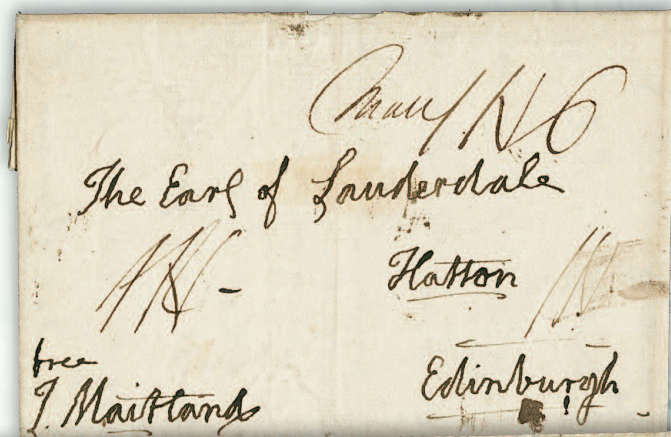 The Earl of Lauderdale
Hatton
Edinburgh
free
J. Maitland